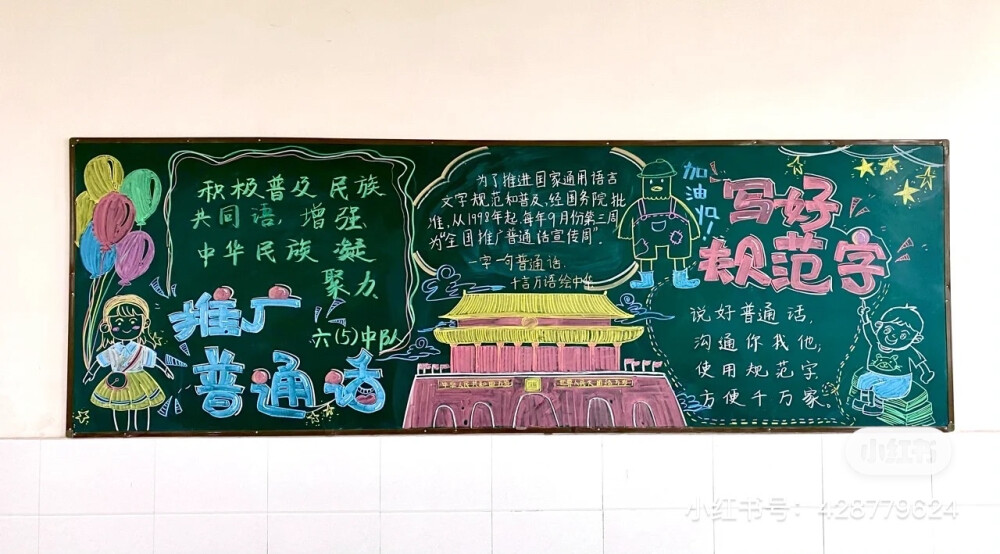 积极普及民族
共同语,增强
中华民族 凝
聚力、
推广
普通话
六(5)中队
为了推进国家通用语言
文字规范和普及,经国务院批
准,从1998年起,每年9月份第三周
为“全国推广普通话宣传周”.
一字一句普通话,
千言万语绘中华
加油炽!
写好
规范字
说好普通话,
沟通你我他;
使用规范字
方便千万家。
小红书
小红书号:428779624